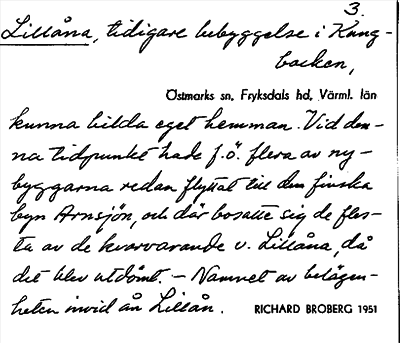 3.
Lillåna, tidigare bebyggelse i Kang-
backen,
Östmarks sn, Fryksdals hd, Värml. län
kunna bilda eget hemman. Vid den-
na tidpunkt hade f.ö. flera av ny-
byggarna redan flyttat till den finska
byn Arnsjön, och där bosatte sig de fles-
ta av de kvarvarande v. Lillåna, då
det blev utdömt. – Namnet av belägen-
heten invid ån Lillån.
RICHARD BROBERG 1951